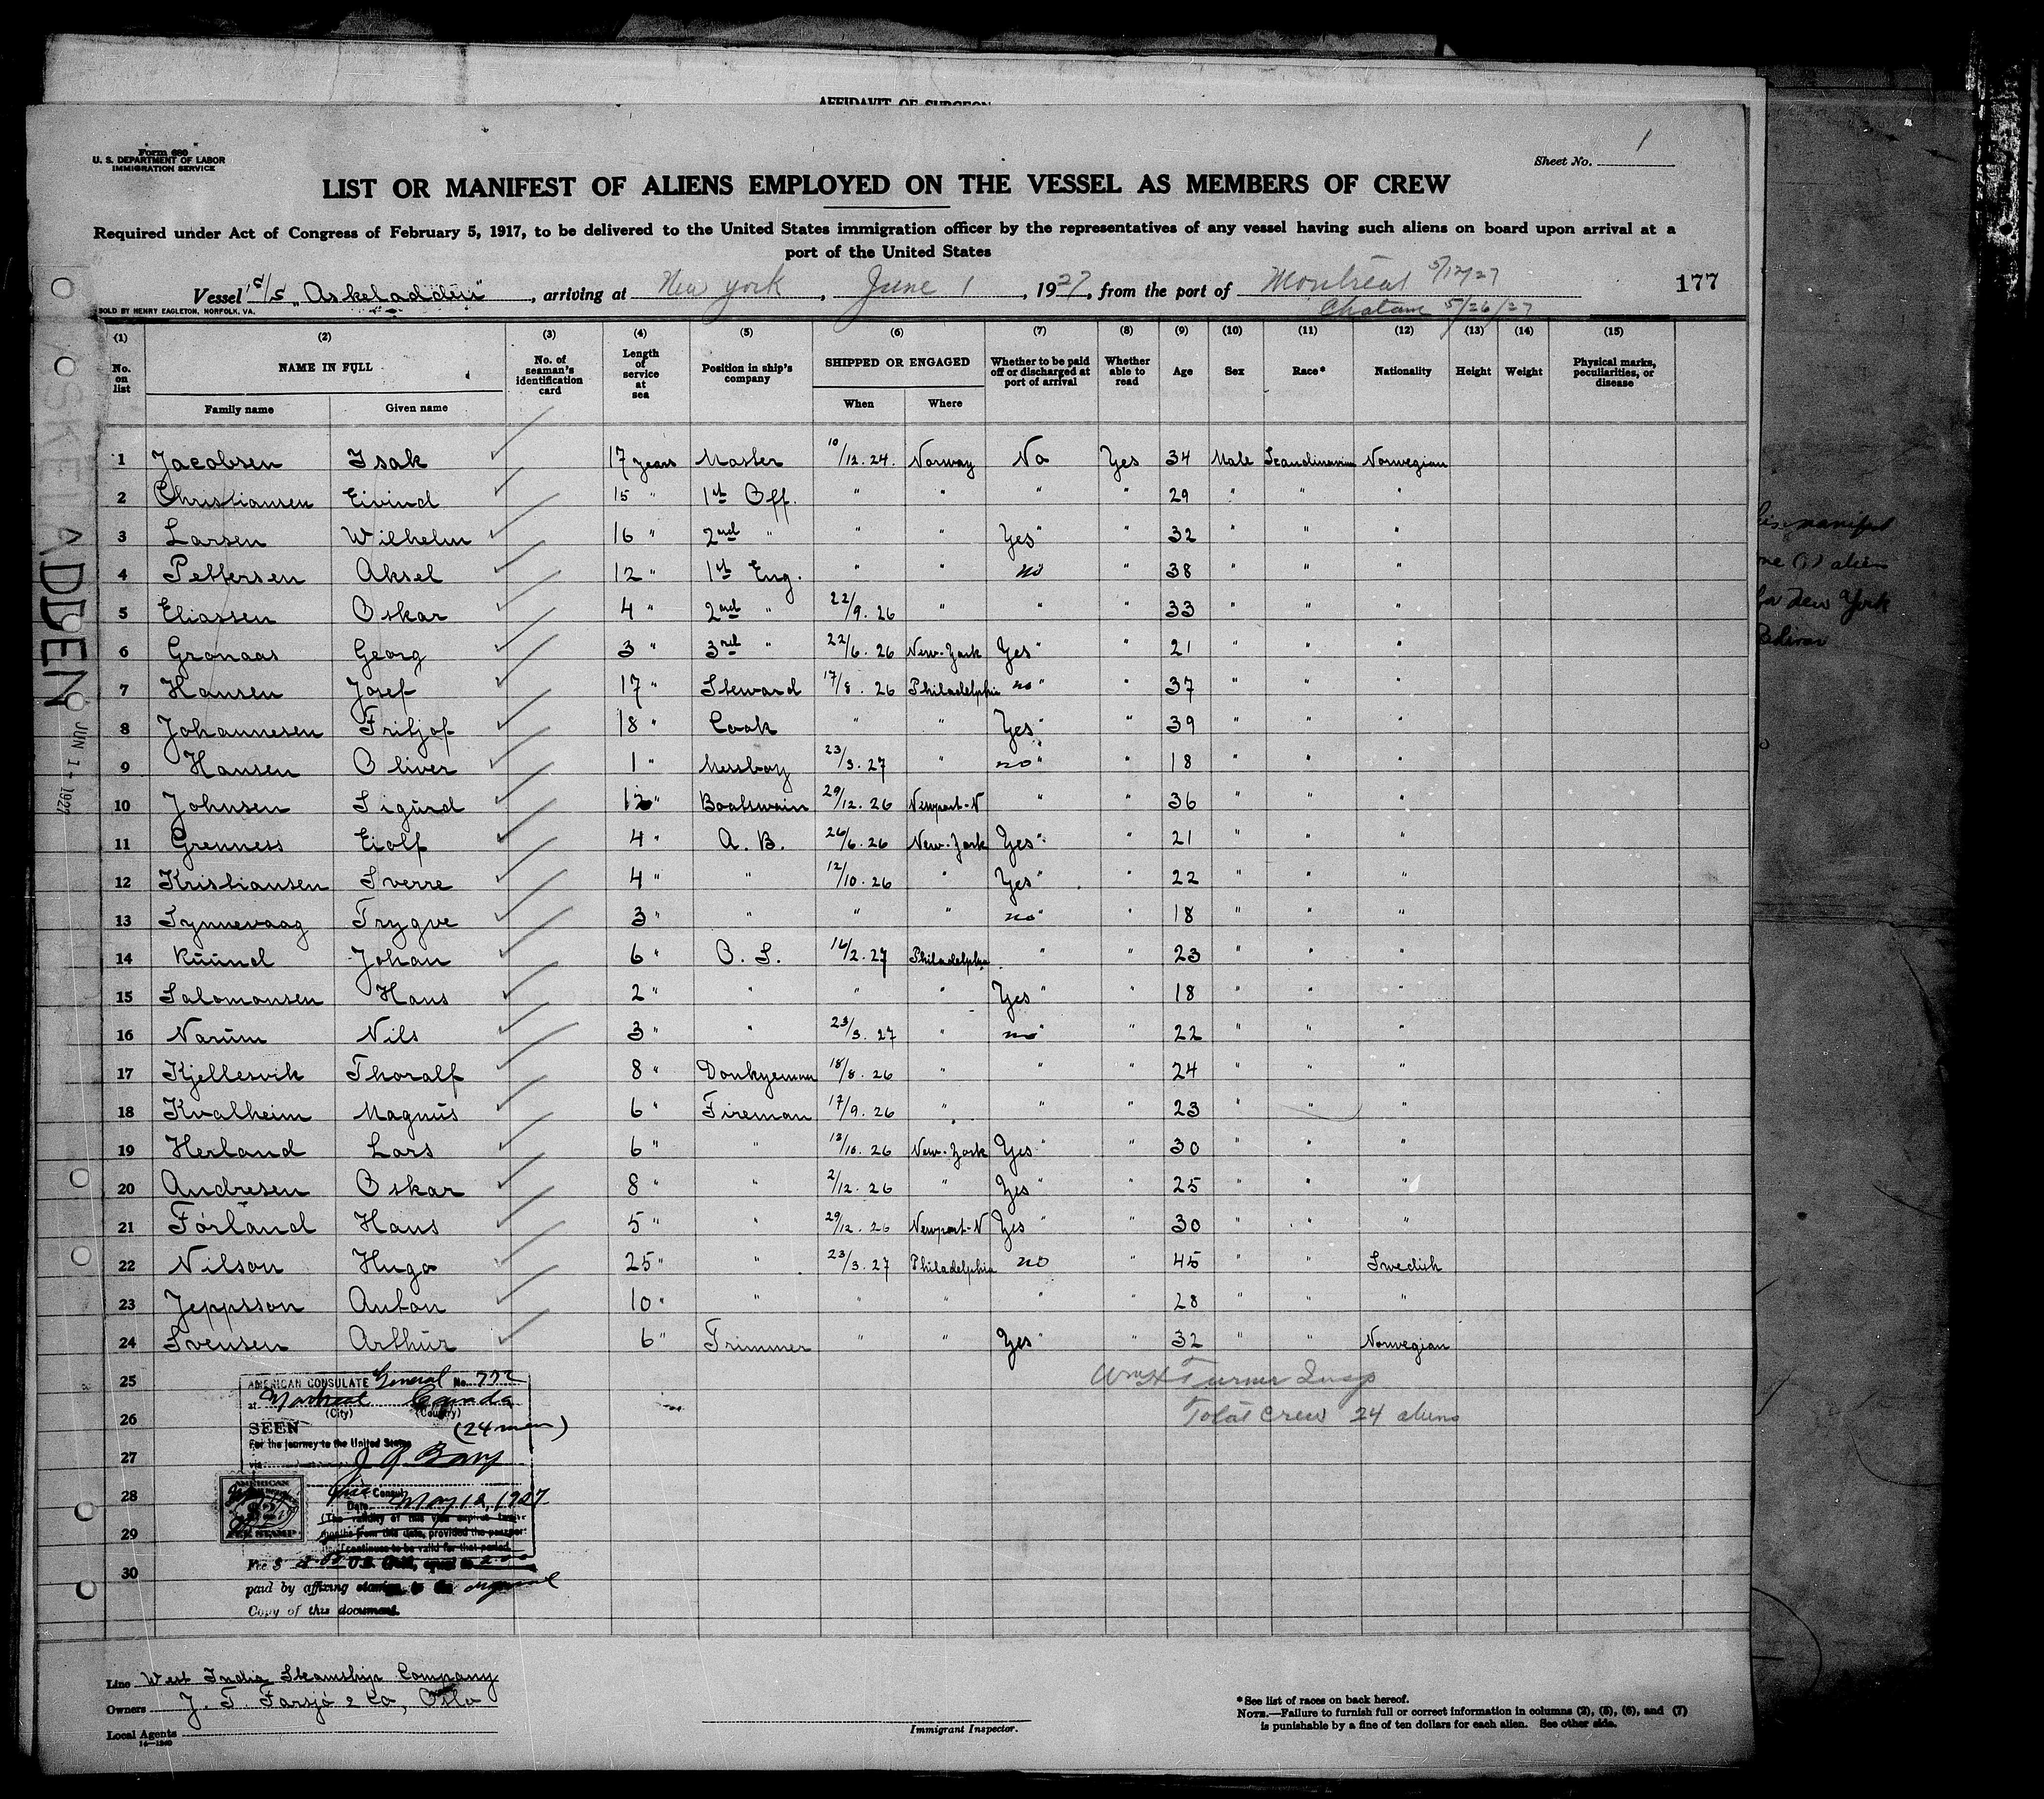 AFFIDAVIT OF SURGEON
Form 680
U. S. DEPARTMENT OF LABOR
IMMIGRATION SERVICE
Sheet No. 1
LIST OR MANIFEST OF ALIENS EMPLOYED ON THE VESSEL AS MEMBERS OF CREW
Required under Act of Congress of February 5, 1917, to be delivered to the United States immigration officer by the representatives of any vessel having such aliens on board upon arrival at a
port of the United States
Vessel S/S "Askeladden", arriving at New York, June 1, 1927, from the port of Montreal 5/12/27
Chatam 5/26/27
177
SOLD BY HENRY EAGLETON, NORFOLK, VA.
(1) (2) (3) (4) (5) (6) (7) (8) (9) (10) (11) (12) (13) (14) (15)
No. on list NAME IN FULL Family name Given name No. of seaman's identification card Length of service at sea Position in ship's company SHIPPED OR ENGAGED When Where Whether to be paid off or discharged at port of arrival Whether able to read Age Sex Race* Nationality Height Weight Physical marks, peculiarities, or disease
1 Jacobsen Isak 17 years Master 10/12.24. Norway No Yes 34 Male Scandinavian Norwegian
2 Christiansen Eivind 15 " 1st Off. " " " " 29 " " "
3 Larsen Wilhelm 16 " 2nd " " " Yes " " 32 " " "
4 Pettersen Aksel 12 " 1st Eng. " " no " 38 " " "
5 Eliassen Oskar 4 " 2nd " 22/9.26 " " " 33 " " "
6 Gronaas Georg 3 " 3rd " 22/6.26 New-York Yes " " 21 " " "
7 Hansen Josef 17 " Steward 17/8.26 Philadelphia no " " 37 " " "
8 Johannesen Fritjof 18 " Cook " " Yes " " 39 " " "
9 Hansen Oliver 1 " Messboy 23/3.27 " no " " 18 " " "
10 Johnsen Sigurd 12 " Boatswain 29/12.26 Newport-N " " 36 " " "
11 Grenness Eiolf 4 " A. B. 26/6.26 New-York Yes " " 21 " " "
12 Kristiansen Sverre 4 " " 12/10.26 " Yes " " 22 " " "
13 Synnevaag Trygve 3 " " " " no " " 18 " " "
14 Ruund Johan 6 " O. S. 16/2.27 Philadelphia " " 23 " " "
15 Salomonsen Hans 2 " " " " Yes " " 18 " " "
16 Narum Nils 3 " " 23/3.27 " no " " 22 " " "
17 Kjellesvik Thoralf 8 " Donkyeman 18/8.26 " " " 24 " " "
18 Kvalheim Magnus 6 " Fireman 17/9.26 " " " 23 " " "
19 Herland Lars 6 " " 12/10.26 New-York Yes " " 30 " " "
20 Andresen Oskar 8 " " 2/12.26 " Yes " " 25 " " "
21 Förland Hans 5 " " 29/12.26 Newport-N Yes " " 30 " " "
22 Nilson Hugo 25 " " 23/3.27 Philadelphia no " 45 " " Swedish
23 Jeppsson Anton 10 " " " " " " 28 " " "
24 Svensen Arthur 6 " Trimmer " " Yes " " 32 " " Norwegian
25
26
27
28
29
30
Wm H Turner Insp
Total Crew 24 aliens
AMERICAN CONSULATE General No. 772
at Montreal Canada
(City) (Country)
SEEN (24 men)
For the journey to the United States
via
Vice Consul
Date May 12, 1927.
(The validity of this visa expires twelve
months from this date, provided the passport
continues to be valid for that period.
AMERICAN
$2
FEE STAMP
Fee $ 2.00 U.S. Gold, equal to 2.00
paid by affixing stamp to the original
Copy of this document.
Line West India Steamship Company
Owners J. T. Farsjö & Co, Oslo
Local Agents
14—1240
Immigrant Inspector.
*See list of races on back hereof.
NOTE.—Failure to furnish full or correct information in columns (2), (5), (6), and (7)
is punishable by a fine of ten dollars for each alien. See other side.
ASKELADDEN
JUN 1 - 1927
manifest
alien
New York